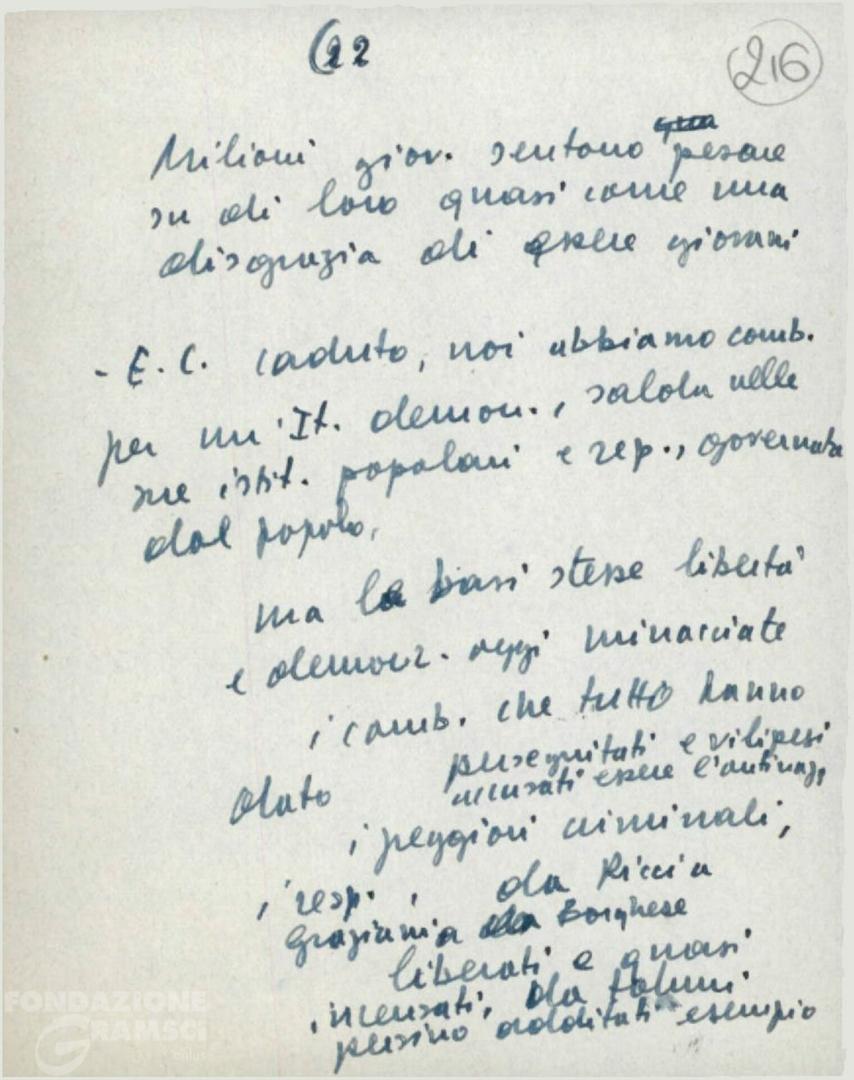 (22
216
Milioni giov. sentono pesare
su di loro quasi come una
disgrazia di essere giovani
- E. C. caduto, noi abbiamo comb.
per un'It. democr., salda nelle
sue istit. popolari e rep., governata
dal popolo,
ma le basi stesse libertà
e democr. oggi minacciate
i comb. che tutto hanno
dato perseguitati e vilipesi
accusati essere l'antinaz,
i peggiori criminali,
i resp., da Ricci a
Graziani a Borghese
liberati e quasi
incensati, da taluni
persino additati esempio
FONDAZIONE
GRAMSCI